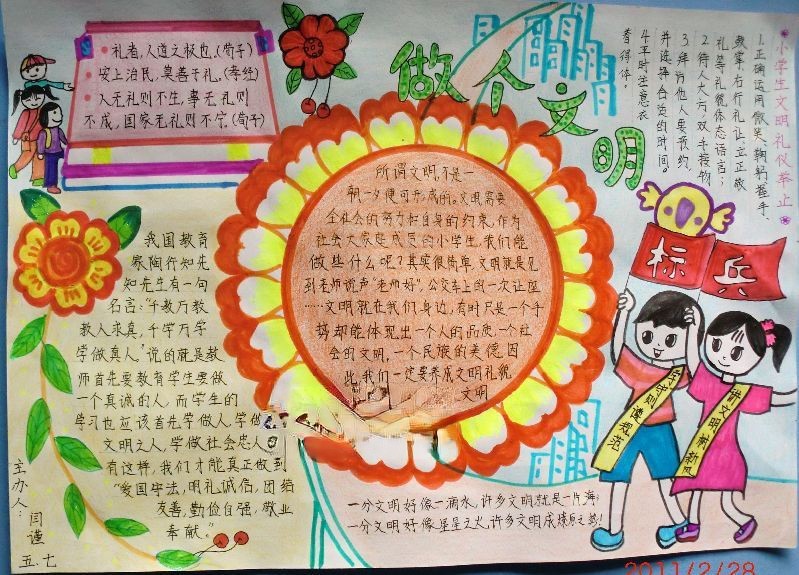 做个文明
礼者，人道之极也。(荀子)
安上治民，莫善于礼。(孝经)
人无礼则不生，事无礼则
不成，国家无礼则不宁。(荀子)
小学生文明礼仪举止
1.正确运用微笑、鞠躬、握手、
鼓掌、右行礼让、立正敬
礼等礼貌体态语言；
2.待人大方，双手接物
3.拜访他人要预约，
并选择合适的时间。
4.平时注意衣
着得体。
所谓文明，不是一
朝一夕便可形成的。文明需要
全社会的努力和自身的约束，作为
社会大家庭成员的小学生，我们能
做些什么呢？其实很简单，文明就是见
到老师说声“老师好”，公交车上的一次让座
……文明就在我们身边，有时尺是一个手
势却能体现出一个人的品质，一个社
会的文明，一个民族的美德。因
此，我们一定要养成文明礼貌
文明
我国教育
家陶行知先
知先生有一句
名言：“千教万教
教人求真，千学万学
学做真人”说的就是教
师首先要教育学生要做
一个真诚的人，而学生的
学习也应该首先学做人，学做
文明之人，学做社会忠人
有这样，我们才能真正做到
“爱国守法，明礼诚信，团结
友善，勤俭自强，敬业
奉献。”
标兵
守守则 遵规范
讲文明 树新风
一分文明好像一滴水，许多文明就是一片海；
一分文明好像星星之火，许多文明成燎原之势！
主办人：
闫谨
五、七
2011/2/28